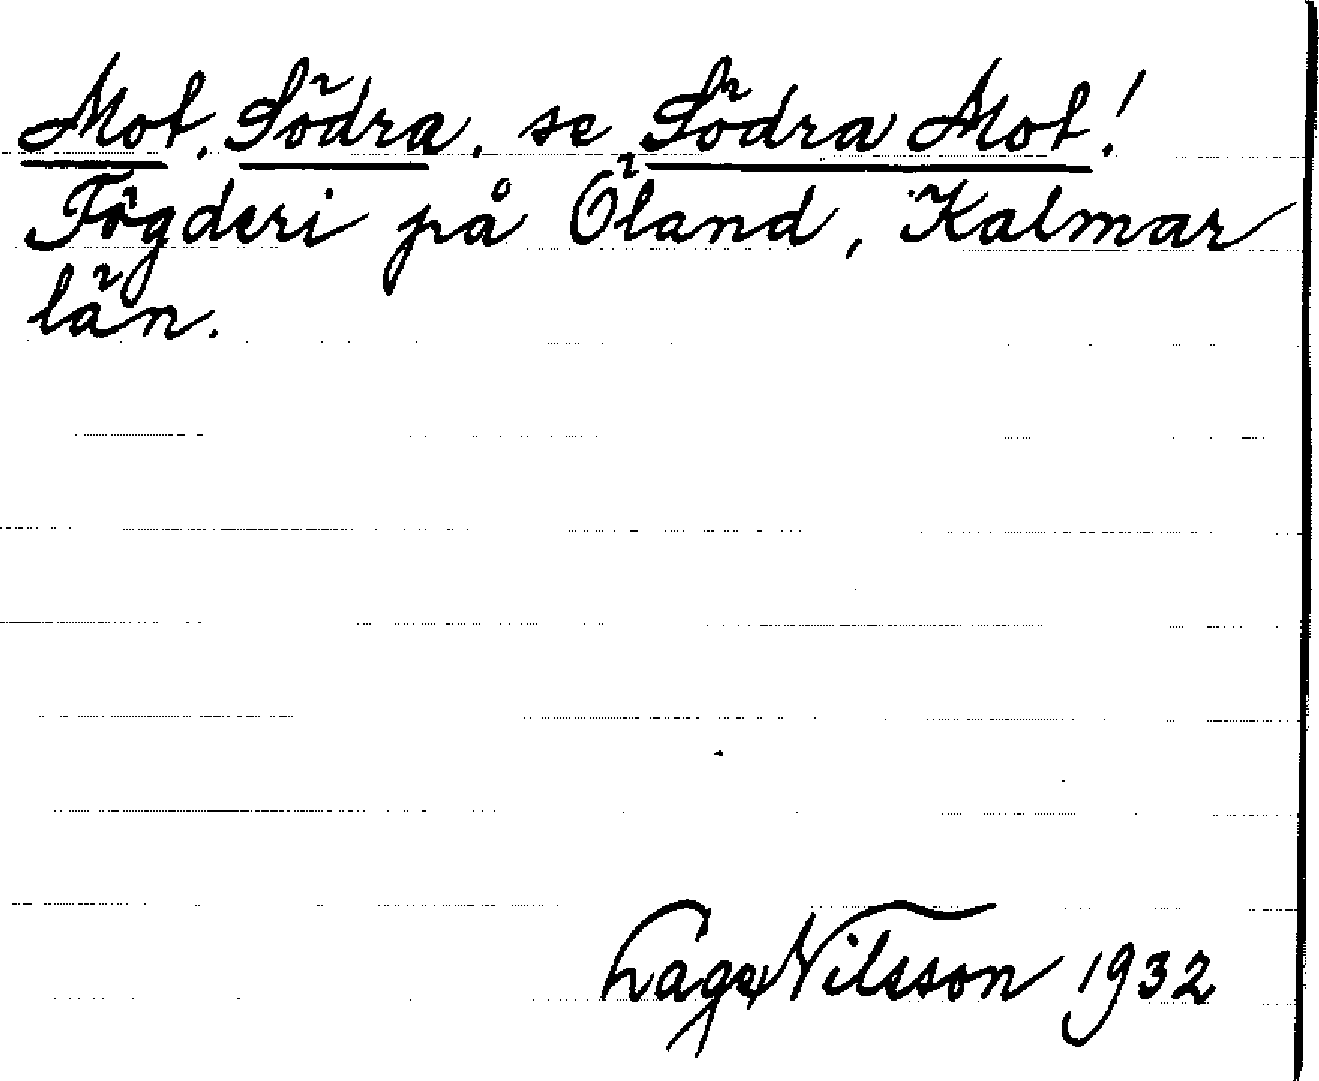 Mot, Södra, se Södra Mot!
Fögderi på Öland, Kalmar
län.
Lage Nilsson 1932